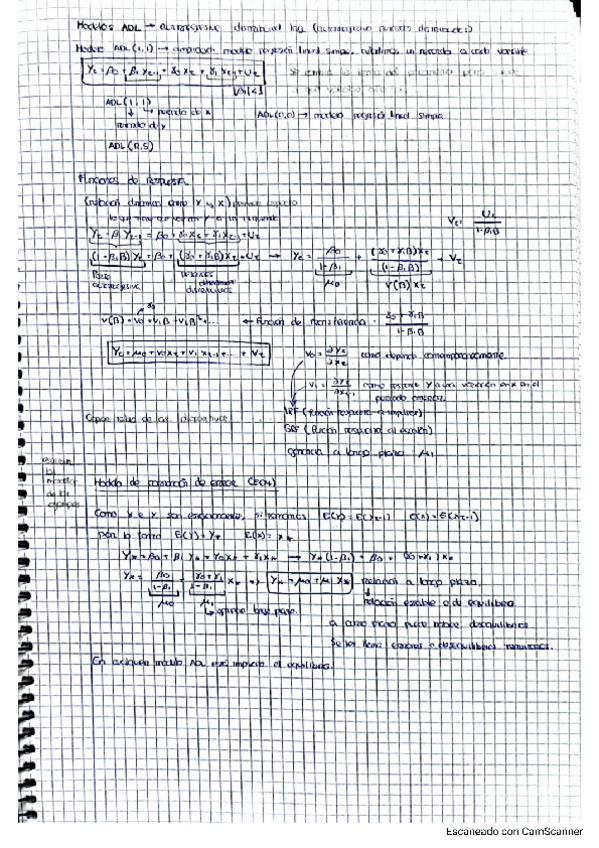 Modelos ADL → autoregressive distributed lag (autoregresivo retardos distribuidos)
Modelo ADL(1,1) → ampliación modelo regresión lineal simple, añadimos un retardo a cada variable
Yt = β0 + β1 Yt-1 + γ0 Xt + γ1 Xt-1 + Ut
|β1|<1
ADL(1,1)
↳ retardo de x
retardo de y
ADL(0,0) → modelo regresión lineal simple
ADL(r,s)
Funciones de respuesta
(relación dinámica entre Y y X)
Yt - β1 Yt-1 = β0 + γ0 Xt + γ1 Xt-1 + Ut
Vt = Ut / 1-β1B
(1-β1B) Yt = β0 + (γ0 + γ1B) Xt + Ut → Yt = β0 / 1-β1 + (γ0 + γ1B) Xt / (1-β1B) + Vt
Parte autoregresiva
retardos distribuidos
μ0
v(B) Xt
v(B) = v0 + v1B + v2B² + ... ← función de transferencia = γ0 + γ1B / 1-β1B
Yt = μ0 + v0 Xt + v1 Xt-1 + ... + Vt
v0 = ∂Yt / ∂Xt como responde contemporáneamente.
v1 = ∂Yt / ∂Xt-1 como responde Y a una variación en x en el período anterior
IRF (función respuesta a impulso)
SRF (función respuesta al escalón)
ganancia a largo plazo μ1
Modelo de corrección de error (ECM)
Como x e y son estacionarias, si tenemos E(Yt) = E(Yt-1) E(Xt) = E(Xt-1)
por lo tanto E(Y) = Y* E(X) = X*
Y* = β0 + β1 Y* + γ0 X* + γ1 X* → Y*(1-β1) = β0 + (γ0 + γ1) X*
Y* = β0 / 1-β1 + γ0 + γ1 / 1-β1 X* ⇒ Y* = μ0 + μ1 X* Relación a largo plazo.
μ0
μ1
↳ ganancia largo plazo.
relación estable o de equilibrio
a corto plazo puede haber desequilibrios
Se les llama errores o desequilibrios
En cualquier modelo ADL está implícito el equilibrio.
Escaneado con CamScanner